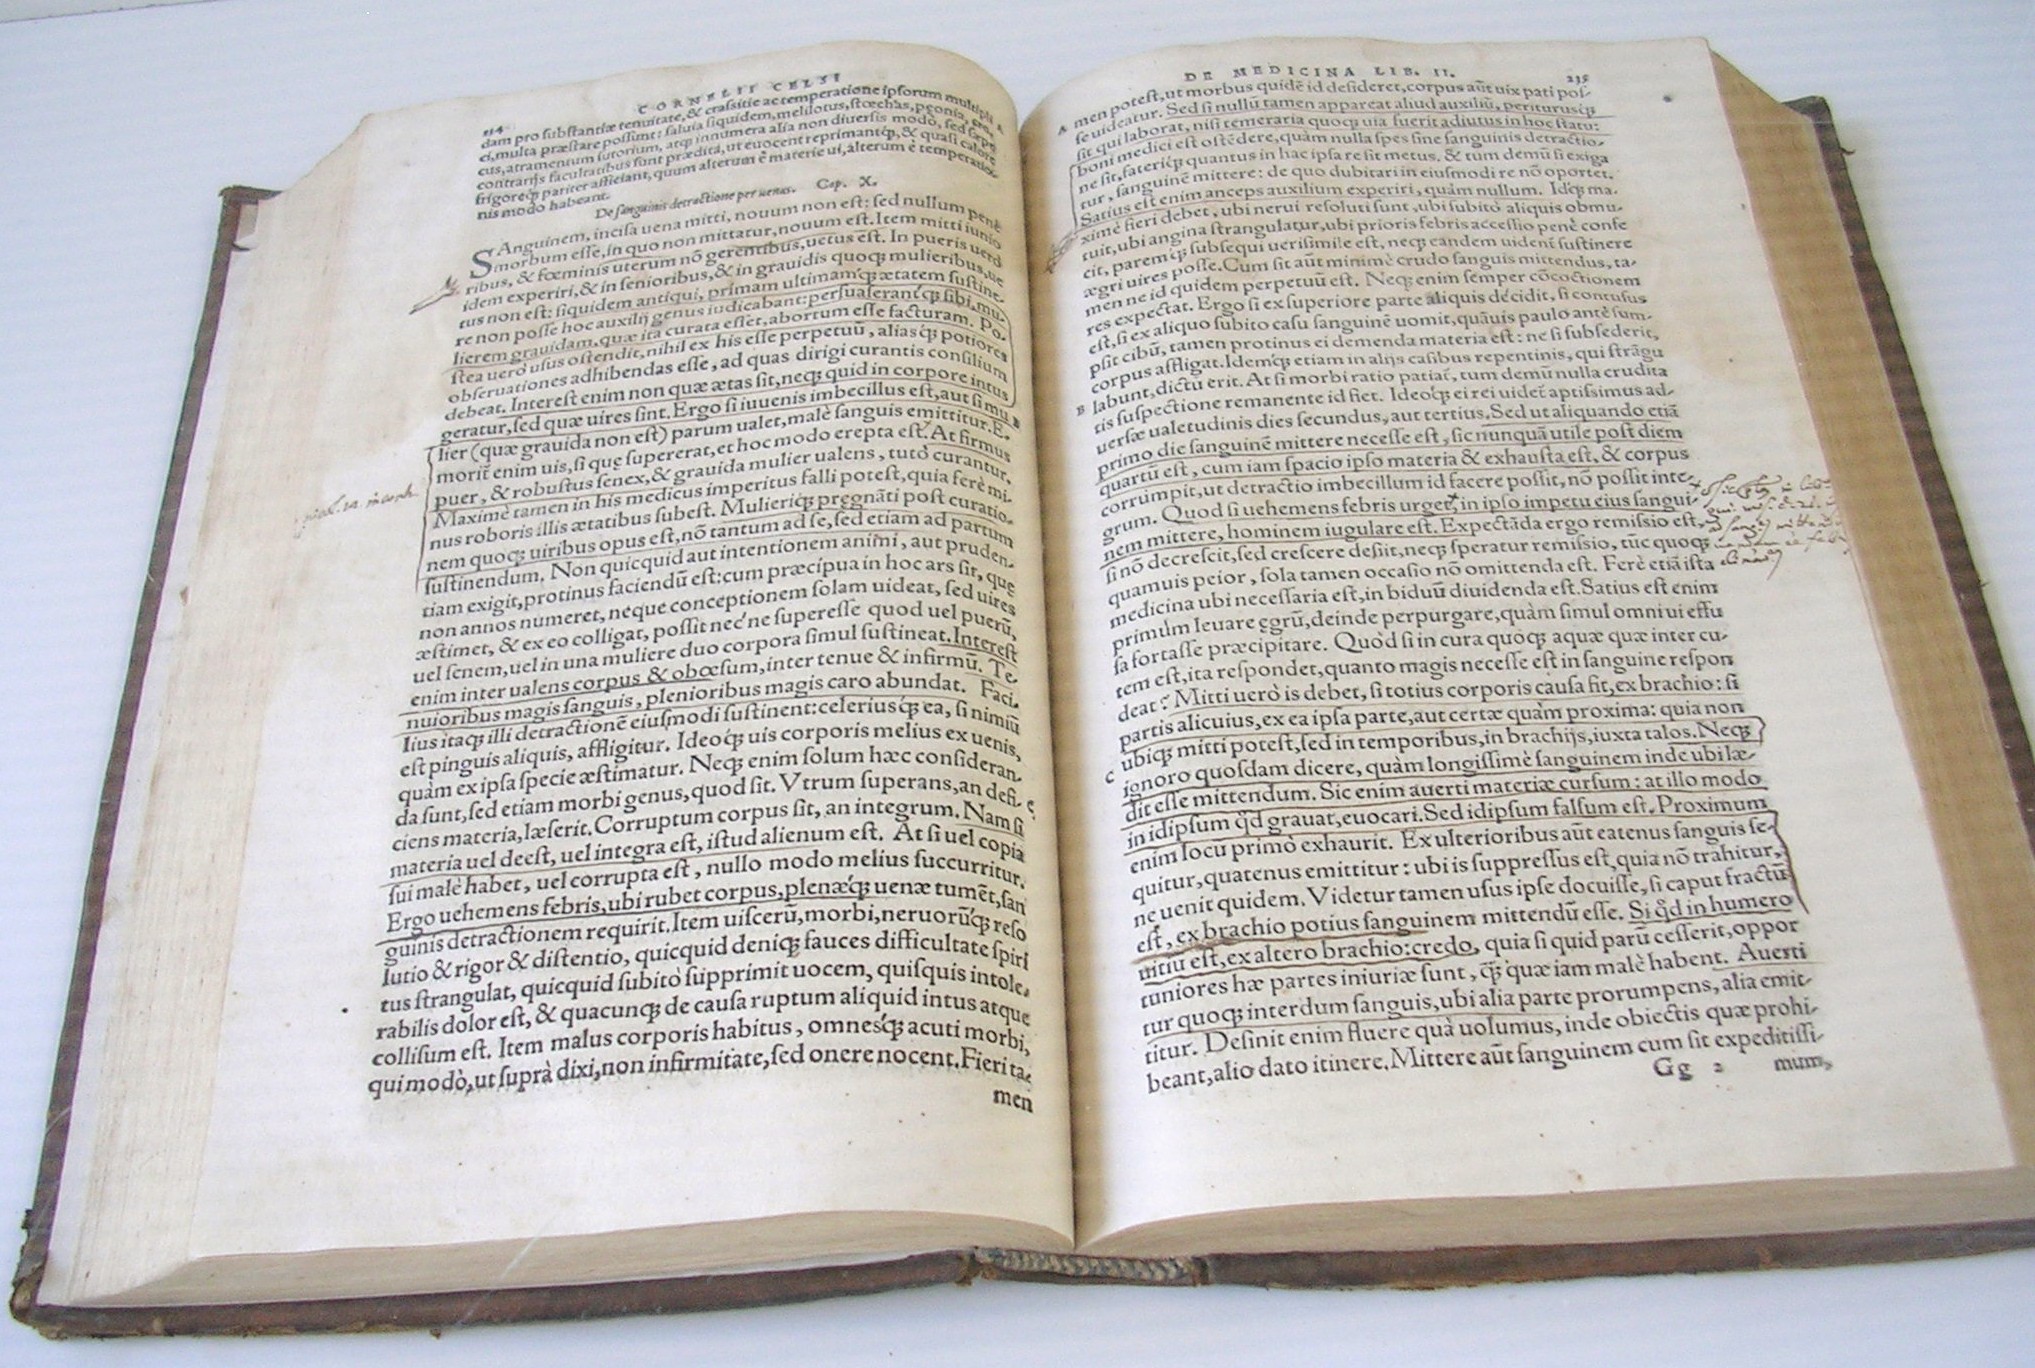 CORNELII CELSI
dam pro substantiæ tenuitate, & crassitie ac temperatione ipsorum multipli
ci, multa præstare possunt: saluia siquidem, melilotus, stœchas, peonia, cro,
cus, atramentum sutorium, atq; innumera alia non diuersis modò, sed sæpe
contrarijs facultatibus sunt prædita, ut euocent reprimantq́;, & quasi calore
frigoreq́; pariter afficiant, quum alterum è materiæ ui, alterum è temperatio-
nis modo habeant.
De sanguinis detractione per uenas. Cap. X.
SAnguinem, incisa uena mitti, nouum non est: sed nullum penè
morbum esse, in quo non mittatur, nouum est. Item mitti iunio
ribus, & fœminis uterum nō gerentibus, uetus est. In pueris uerò
idem experiri, & in senioribus, & in grauidis quoq; mulieribus, ue
tus non est: siquidem antiqui, primam ultimamq́; ætatem sustine-
re non posse hoc auxilij genus iudicabant: persuaserantq́; sibi, mu-
lierem grauidam, quæ ita curata esset, abortum esse facturam. Po-
stea uerò usus ostendit, nihil ex his esse perpetuū, aliasq́; potiores
obseruationes adhibendas esse, ad quas dirigi curantis consilium
debeat. Interest enim non quæ ætas sit, neq; quid in corpore intus
geratur, sed quæ uires sint. Ergo si iuuenis imbecillus est, aut si mu B
lier (quæ grauida non est) parum ualet, malè sanguis emittitur. E-
morit̄ enim uis, si quę supererat, et hoc modo erepta est. At firmus
puer, & robustus senex, & grauida mulier ualens, tutò curantur.
Maximè tamen in his medicus imperitus falli potest, quia ferè mi-
nus roboris illis ætatibus subest. Mulieriq́; pręgnāti post curatio-
nem quoq; uiribus opus est, nō tantum ad se, sed etiam ad partum
sustinendum. Non quicquid aut intentionem animi, aut pruden-
tiam exigit, protinus faciendū est: cum præcipua in hoc ars sit, quę
non annos numeret, neque conceptionem solam uideat, sed uires
æstimet, & ex eo colligat, possit nec'ne superesse quod uel puerū,
uel senem, uel in una muliere duo corpora simul sustineat. Interest
enim inter ualens corpus & obœsum, inter tenue & infirmū. Te-
nuioribus magis sanguis, plenioribus magis caro abundat. Faci-
lius itaq; illi detractionē eiusmodi sustinent: celeriusq́; ea, si nimiū
est pinguis aliquis, affligitur. Ideoq́; uis corporis melius ex uenis,
quàm ex ipsa specie æstimatur. Neq; enim solum hæc consideran-
da sunt, sed etiam morbi genus, quod sit. Vtrum superans, an defi- C
ciens materia, læserit. Corruptum corpus sit, an integrum. Nam si
materia uel deest, uel integra est, istud alienum est. At si uel copia
sui malè habet, uel corrupta est, nullo modo melius succurritur.
Ergo uehemens febris, ubi rubet corpus, plenæq́; uenæ tumēt, san
guinis detractionem requirit. Item uiscerū, morbi, neruorūq́; reso
lutio & rigor & distentio, quicquid deniq; fauces difficultate spiri
tus strangulat, quicquid subitò supprimit uocem, quisquis intole-
rabilis dolor est, & quacunq; de causa ruptum aliquid intus atque
collisum est. Item malus corporis habitus, omnesq́; acuti morbi,
qui modò, ut suprà dixi, non infirmitate, sed onere nocent. Fieri ta-
men
DE MEDICINA LIB. II. 235
A men potest, ut morbus quidē id desideret, corpus aūt uix pati pos-
se uideatur. Sed si nullū tamen appareat aliud auxiliū, periturusq́;
sit qui laborat, nisi temeraria quoq; uia fuerit adiutus in hoc statu:
boni medici est ostēdere, quàm nulla spes sine sanguinis detractio-
ne sit, faterìq́; quantus in hac ipsa re sit metus. & tum demū si exiga
tur, sanguinē mittere: de quo dubitari in eiusmodi re nō oportet.
Satius est enim anceps auxilium experiri, quàm nullum. Idq́; ma-
ximè fieri debet, ubi nerui resoluti sunt, ubi subitò aliquis obmu-
tuit, ubi angina strangulatur, ubi prioris febris accessio penè confe
cit, paremq́; subsequi uerisimile est, neq; eandem uident̄ sustinere
ægri uires posse. Cum sit aūt minimè crudo sanguis mittendus, ta-
men ne id quidem perpetuū est. Neq; enim semper cōcoctionem
res expectat. Ergo si ex superiore parte aliquis decidit, si contusus
est, si ex aliquo subito casu sanguinē uomit, quāuis paulo antè sum-
psit cibū, tamen protinus ei demenda materia est: ne si subsederit,
corpus affligat. Idemq́; etiam in alijs casibus repentinis, qui strāgu
B labunt, dictū erit. At si morbi ratio patiat̄, tum demū nulla crudita
tis suspectione remanente id fiet. Ideoq́; ei rei uidet̄ aptissimus ad-
uersæ ualetudinis dies secundus, aut tertius. Sed ut aliquando etiā
primo die sanguinē mittere necesse est, sic nunquā utile post diem
quartū est, cum iam spacio ipso materia & exhausta est, & corpus
corrumpit, ut detractio imbecillum id facere possit, nō possit inte-
grum. Quod si uehemens febris urget, in ipso impetu eius sangui-
nem mittere, hominem iugulare est. Expectāda ergo remissio est,
si nō decrescit, sed crescere desijt, neq; speratur remissio, tūc quoq;
quamuis peior, sola tamen occasio nō omittenda est. Ferè etiā ista
medicina ubi necessaria est, in biduū diuidenda est. Satius est enim
primùm leuare ęgrū, deinde perpurgare, quàm simul omni ui effu
sa fortasse præcipitare. Quòd si in cura quoq; aquæ quæ inter cu-
tem est, ita respondet, quanto magis necesse est in sanguine respon
deat? Mitti uerò is debet, si totius corporis causa fit, ex brachio: si
partis alicuius, ex ea ipsa parte, aut certæ quàm proxima: quia non
C ubiq; mitti potest, sed in temporibus, in brachijs, iuxta talos. Neq;
ignoro quosdam dicere, quàm longissimè sanguinem inde ubi læ-
dit esse mittendum. Sic enim auerti materiæ cursum: at illo modo
in idipsum qd̄ grauat, euocari. Sed idipsum falsum est. Proximum
enim locū primò exhaurit. Ex ulterioribus aūt eatenus sanguis se-
quitur, quatenus emittitur: ubi is suppressus est, quia nō trahitur,
ne uenit quidem. Videtur tamen usus ipse docuisse, si caput fractū
est, ex brachio potius sanguinem mittendū esse. Si qd̄ in humero
uitiū est, ex altero brachio: credo, quia si quid parū cesserit, oppor
tuniores hæ partes iniuriæ sunt, q̄; quæ iam malè habent. Auerti
tur quoq; interdum sanguis, ubi alia parte prorumpens, alia emit-
titur. Desinit enim fluere quà uolumus, inde obiectis quæ prohi-
beant, alio dato itinere. Mittere aūt sanguinem cum sit expeditissi-
Gg 2 mum,